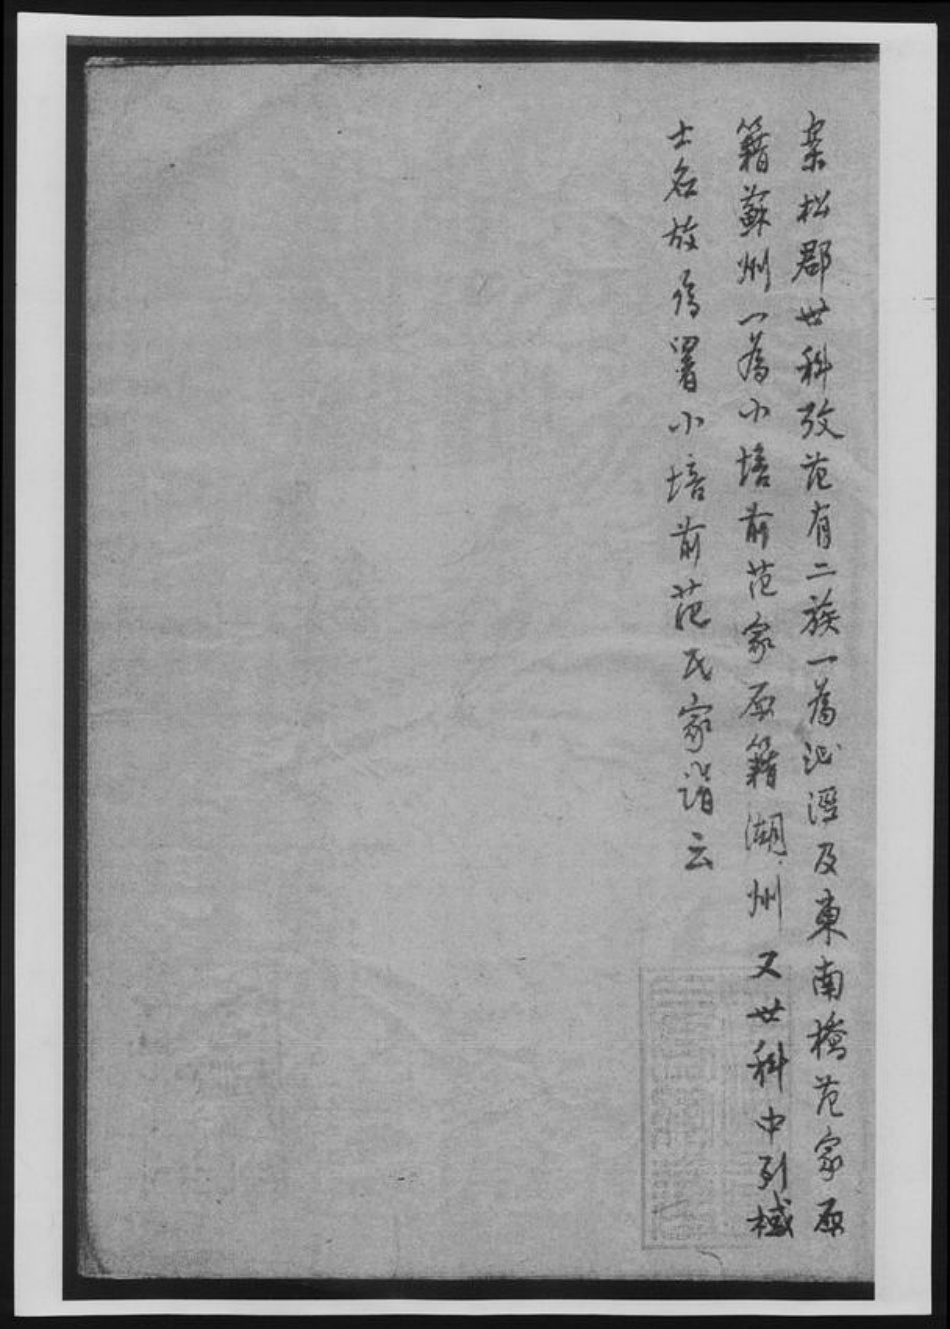 案松郡世科攷范有二族一為沁涇及東南橋范家原
籍蘇州一為小塔前范家原籍湖州又世科中列棫
士名故為署小塔前范氏家譜云